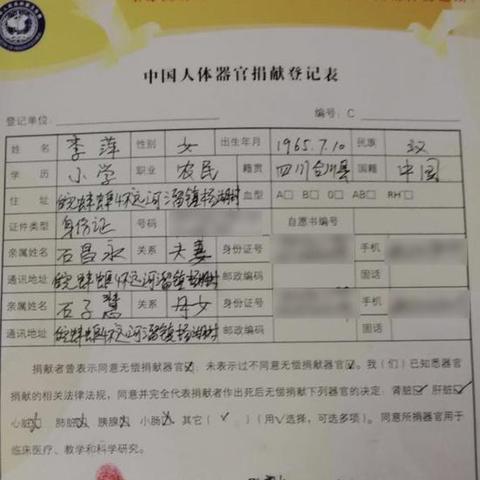 中国人体器官捐献登记表
登记单位： 编号：C
姓名 李萍 性别 女 出生年月 1965.7.10 民族 汉
学历 小学 职业 农民 籍贯 四川合川县 国籍 中国
住址 皖蚌埠怀远河溜镇杨湖村 血型 A□ B□ O□ AB□ RH□
证件类型 身份证 号码 自愿书编号
亲属姓名 石昌永 关系 夫妻 身份证号 手机
通讯地址 皖蚌埠怀远河溜镇杨湖村 邮政编码 固话
亲属姓名 石子慧 关系 母女 身份证号 手机
通讯地址 皖蚌埠怀远河溜镇杨湖村 邮政编码 固话
捐献者曾表示同意无偿捐献器官□；未表示过不同意无偿捐献器官☑。我（们）已知悉器官
捐献的相关法律法规，同意并完全代表捐献者作出死后无偿捐献下列器官的决定：肾脏☑ 肝脏☑
心脏☑ 肺脏☑ 胰腺☑ 小肠☑ 其它（ ✓ ）（用√选择，可选多项）。同意所捐器官用于
临床医疗、教学和科学研究。